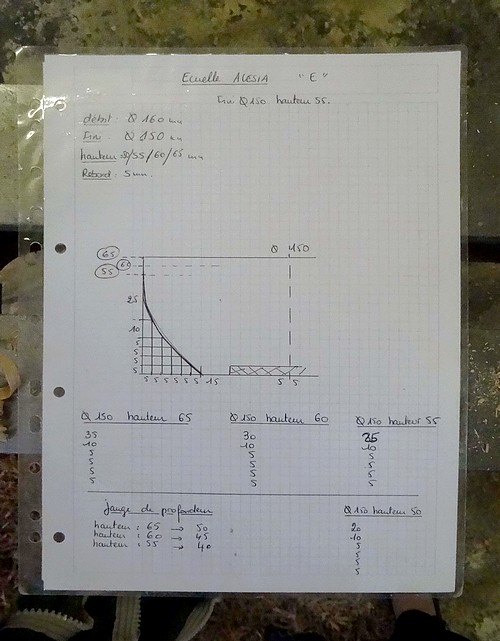 Ecuelle ALESIA "E"
Fini Ø 150 hauteur 55.
débit : Ø 160 mm
Fini : Ø 150 mm
hauteur : /55/60/65 mm
Rebord : 5 mm.
65
60
55
Ø 150
25
10
5
5
5
5
5 5 5 5 5 5 15
5 5
Ø 150 hauteur 65
35
10
5
5
5
5
5
Ø 150 hauteur 60
30
10
5
5
5
5
5
Ø 150 hauteur 55
25
10
5
5
5
5
5
jauge de profondeur
hauteur : 65 → 50
hauteur : 60 → 45
hauteur : 55 → 40
Ø 150 hauteur 50
20
10
5
5
5
5
5